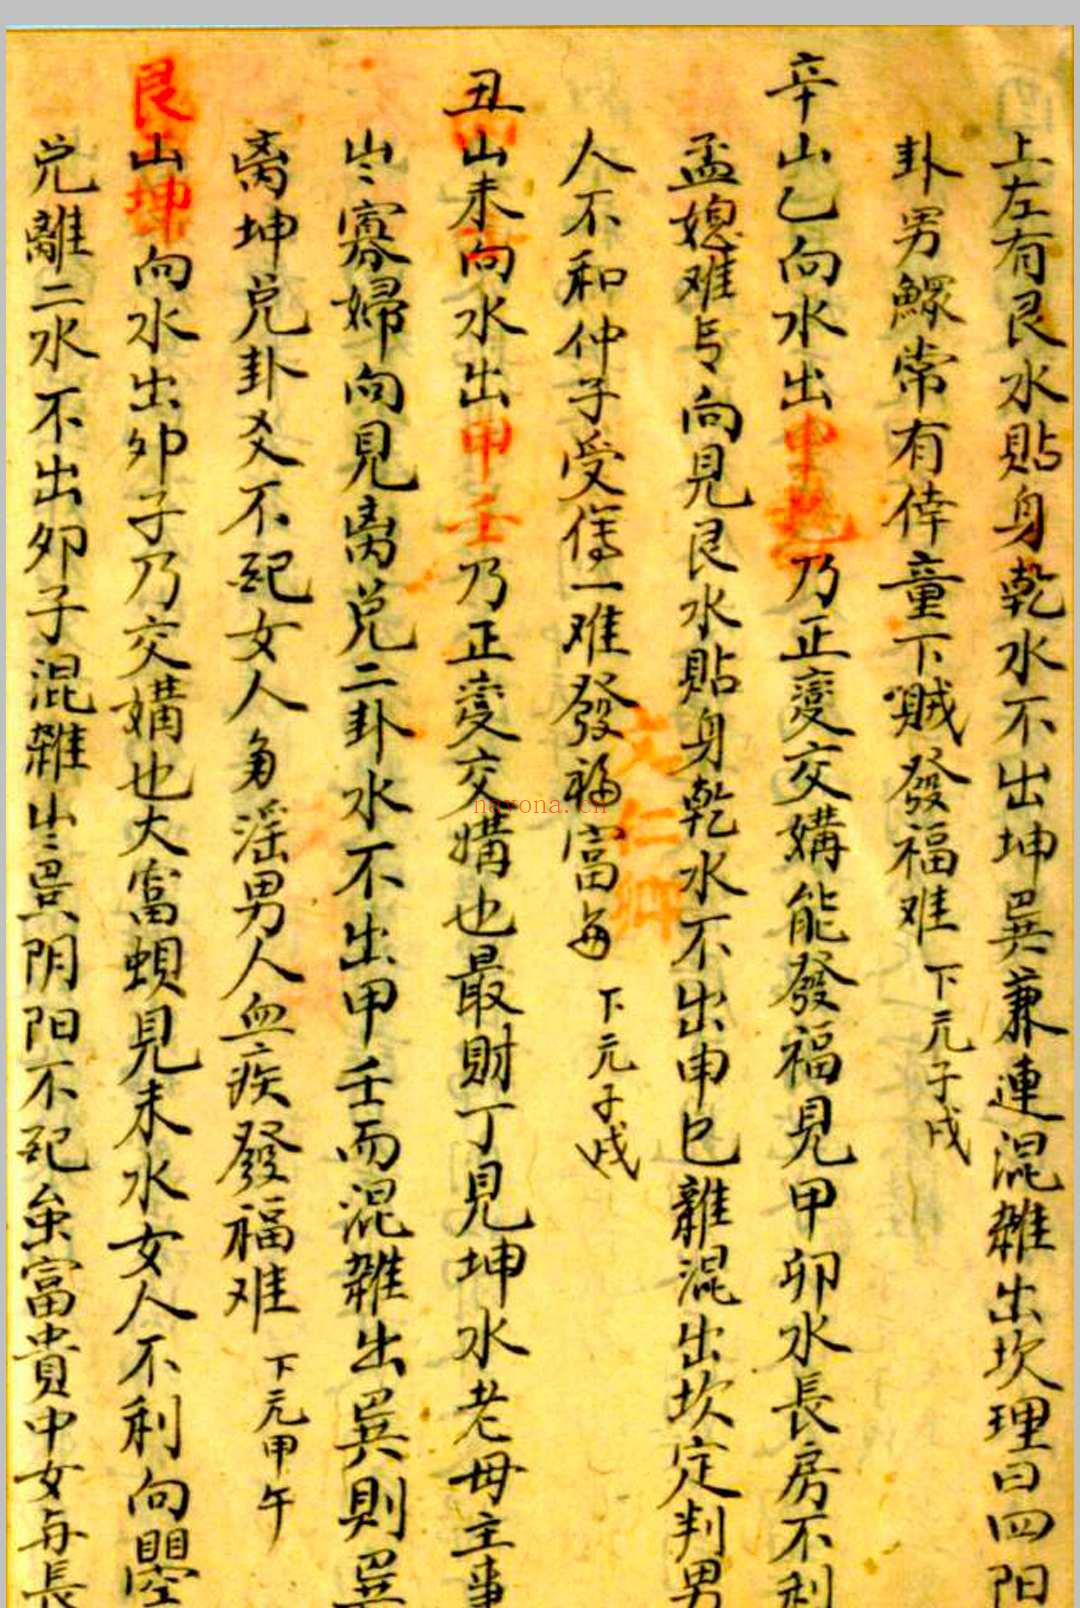 上左有艮水貼身乾水不出坤巽兼連混雜出坎理曰四阳
卦男鰥常有倖童下賊發福难 下元子戌
辛山乙向水出申乃正变交媾能發福見甲卯水長房不利
孟媳难与向見艮水貼身乾水不出申巳離混出坎定判男
人不和仲子受隽一难發福富每 下元子戌
丑山未向水出甲壬乃正变交媾也最財丁見坤水老母主事
岂寡婦向見离兑二卦水不出甲壬而混雜出巽則巽
离坤兑卦爻不配女人多淫男人血疾發福难 下元甲午
艮山坤向水出卯子乃交媾也大富蜆見未水女人不利向開
兑離二水不出卯子混雜出巽阴阳不配虽富貴中女与長
文仁卿
nayona.cn